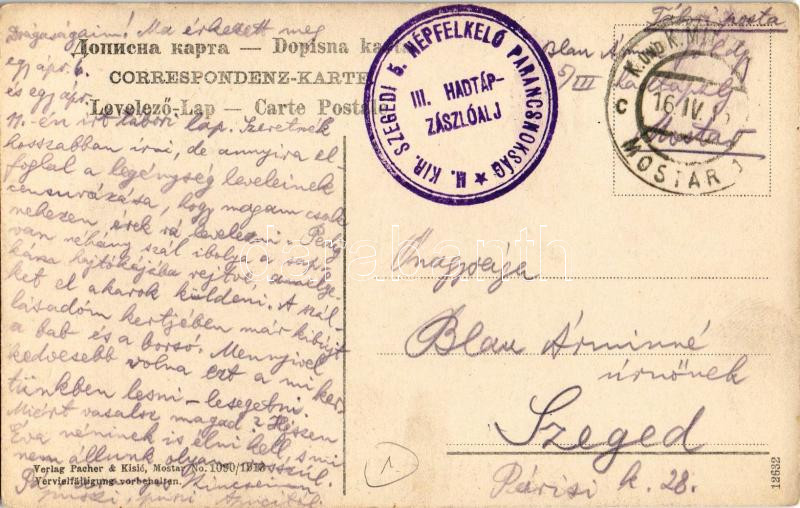 Drágaságaim! Ma érkezett meg
egy ápr. 6.
és egy ápr.
11.-én írt tábori lap. Szeretnék
hosszabban írni, de annyira el-
foglal a legénység leveleinek
censurázása, hogy magam csak
nehezen érek rá levelezni. Pedig
van néhány szál ibolya a sap-
kám hajtókájába rejtve, amelye-
ket el akarok küldeni. A szál-
lásadóm kertjében már kibújt
a bab és a borsó. Mennyivel
kedvesebb volna ezt a mi ker-
tünkben lesni-lesegetni.
Miért vasalsz magad? Hiszen
Éva néninek is élni kell, s mi
nem állunk olyan rosszul.
puszi, puszi Apucitól.
Дописна карта — Dopisna karta
CORRESPONDENZ-KARTE
Levelező-Lap — Carte Postale
M. KIR. SZEGEDI 5. NÉPFELKELŐ PARANCSNOKSÁG
III. HADTÁP-
ZÁSZLÓALJ
Tábori posta
Blau
5/III
Mostar
K. UND K. MIL
C
16 IV
MOSTAR 1
Őnagysága
Blau Árminné
úrnőnek
Szeged
Párisi k. 28.
1
Verlag Pacher & Kisić, Mostar No. 1090/1913
Vervielfältigung vorbehalten.
12632
darabanth